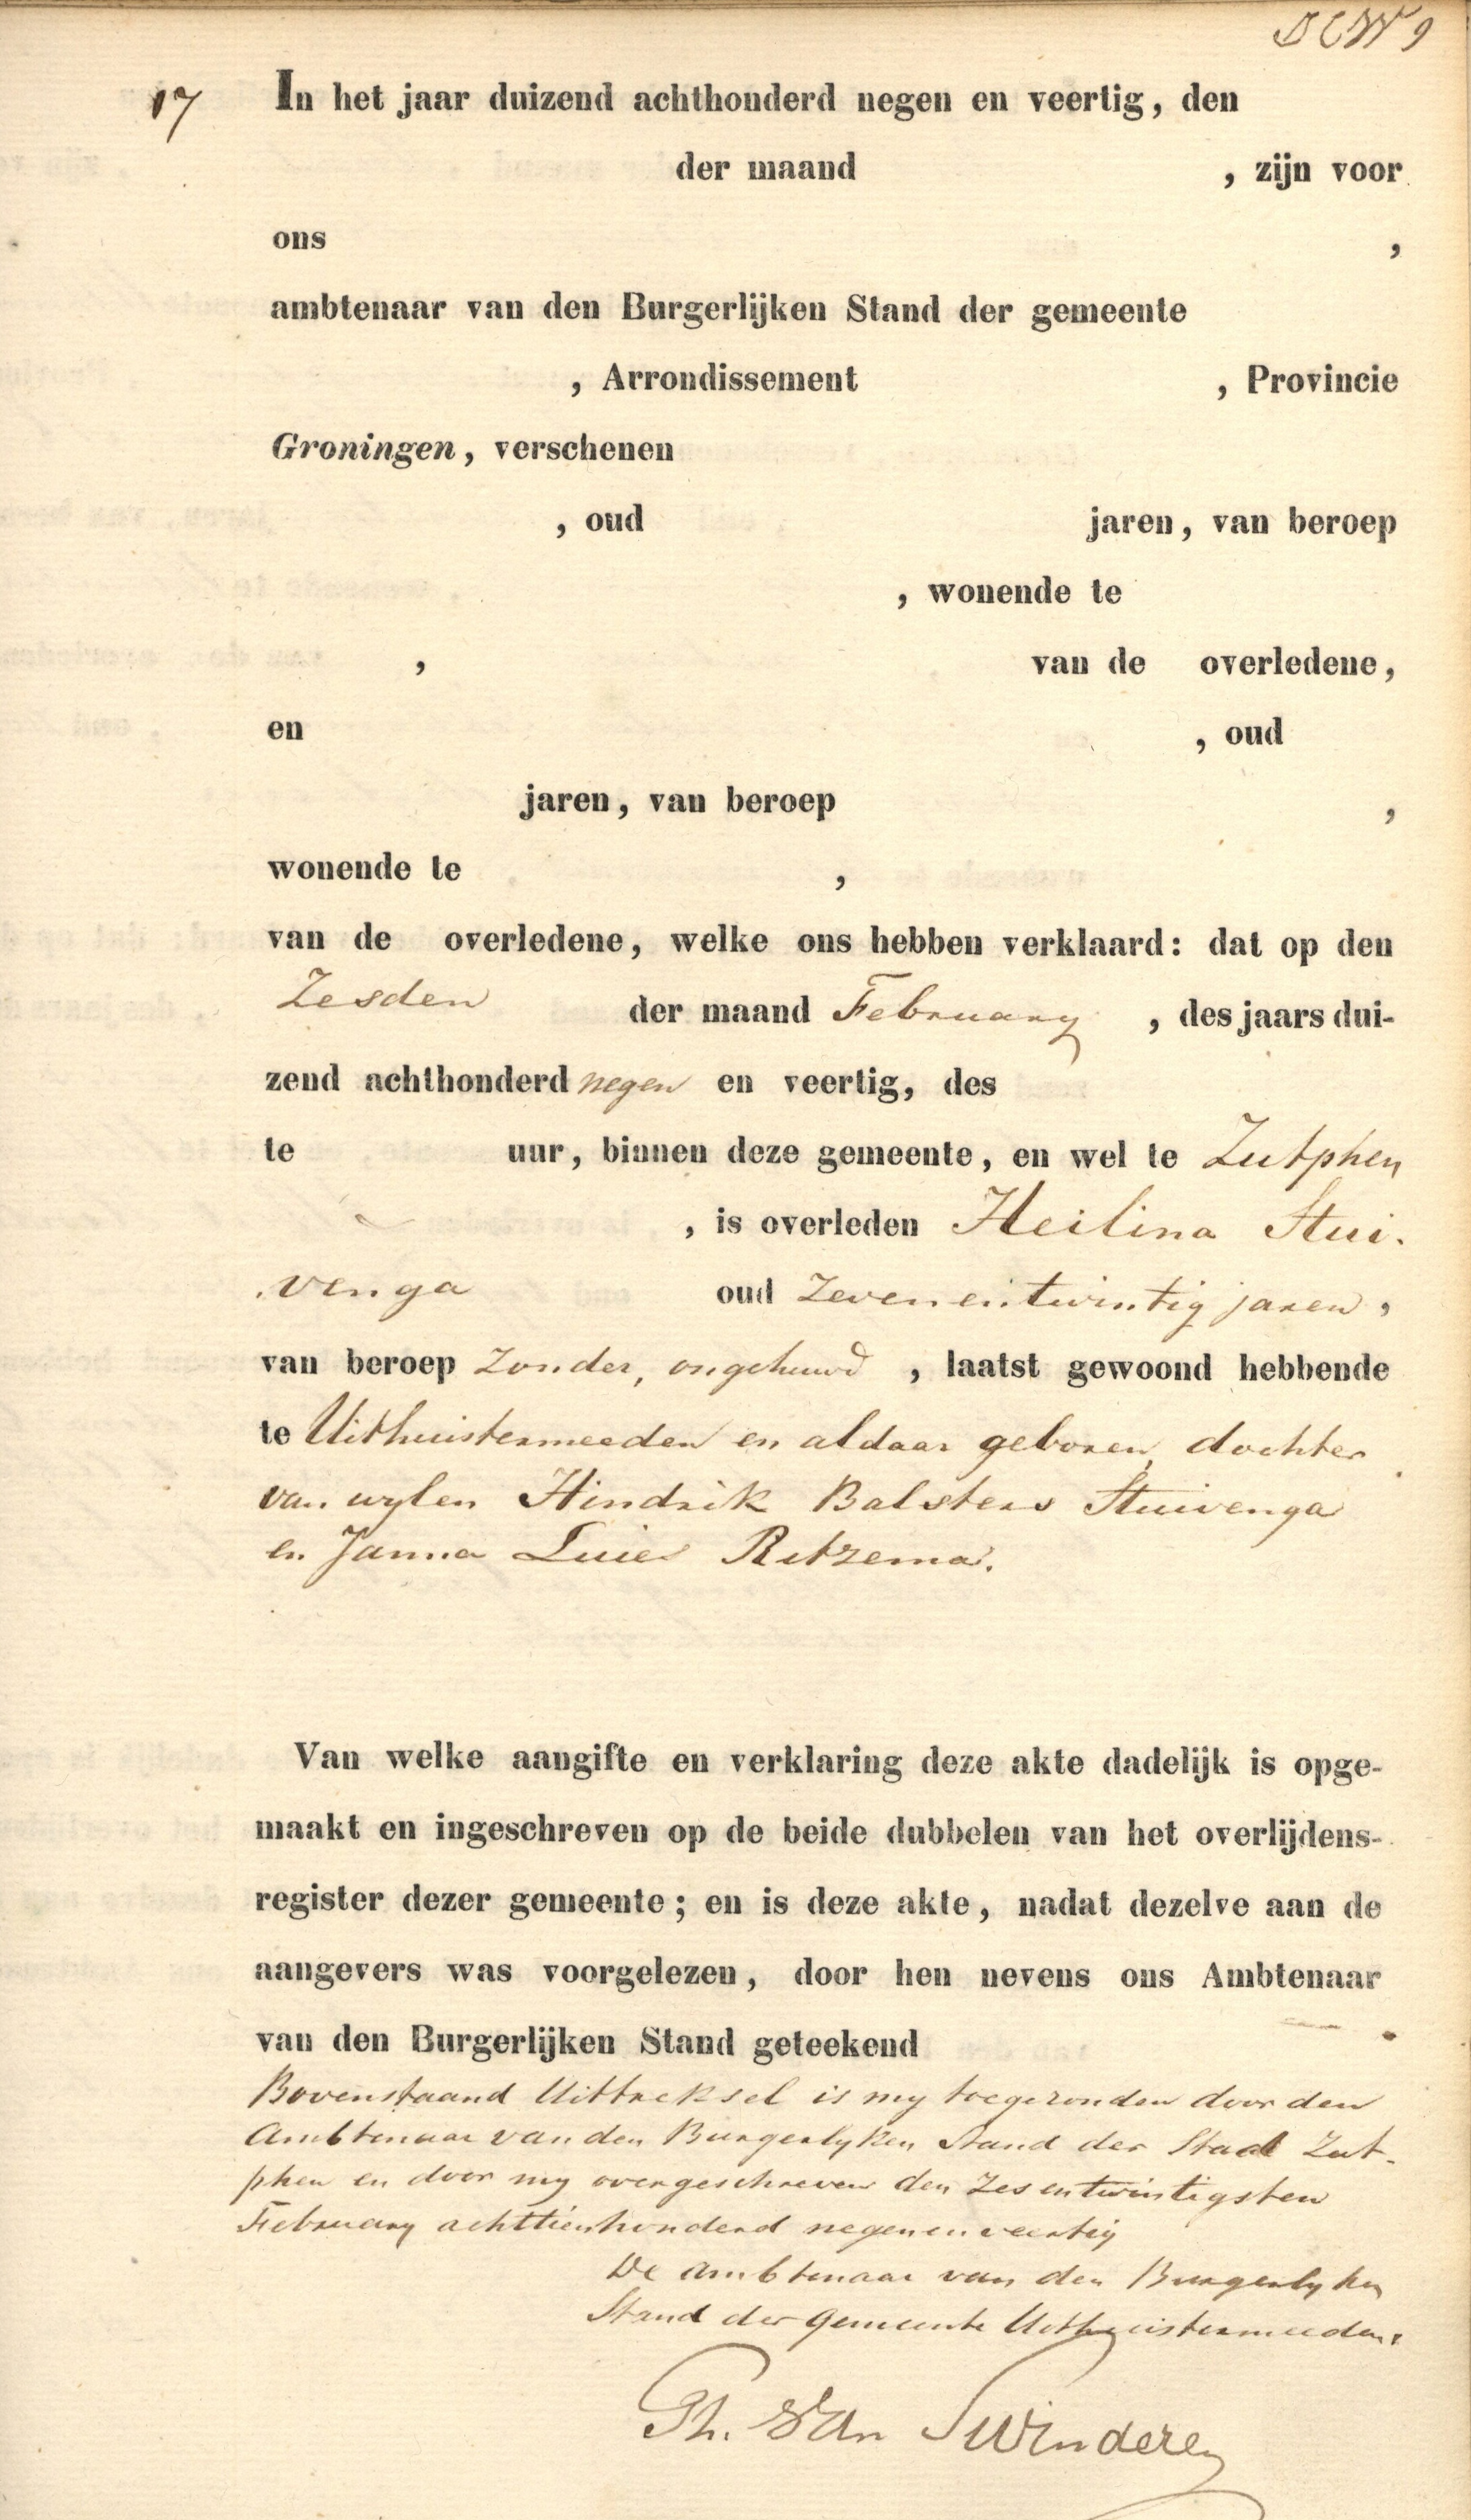 17 In het jaar duizend achthonderd negen en veertig, den
der maand , zijn voor
ons ,
ambtenaar van den Burgerlijken Stand der gemeente
, Arrondissement , Provincie
Groningen, verschenen
, oud jaren, van beroep
, wonende te
, van de overledene,
en , oud
jaren, van beroep ,
wonende te ,
van de overledene, welke ons hebben verklaard: dat op den
Zesden der maand February , des jaars dui-
zend achthonderd negen en veertig, des
te uur, binnen deze gemeente, en wel te Zutphen
, is overleden Heilina Stui-
venga oud Zevenentwintig jaren,
van beroep Zonder, ongehuwd , laatst gewoond hebbende
te Uithuistermeeden en aldaar geboren, dochter
van wylen Hindrik Balsters Stuivenga
en Janna Luies Ritzema.
Van welke aangifte en verklaring deze akte dadelijk is opge-
maakt en ingeschreven op de beide dubbelen van het overlijdens-
register dezer gemeente; en is deze akte, nadat dezelve aan de
aangevers was voorgelezen, door hen nevens ons Ambtenaar
van den Burgerlijken Stand geteekend .
Bovenstaand Uittreksel is my toegezonden door den
Ambtenaar van den Burgerlyken Stand der Stad Zut-
phen en door my overgeschreven den Zesentwintigsten
February achttienhonderd negenenveertig
De Ambtenaar van den Burgerlyken
Stand der Gemeente Uithuistermeeden.
Th. Van Swinderen